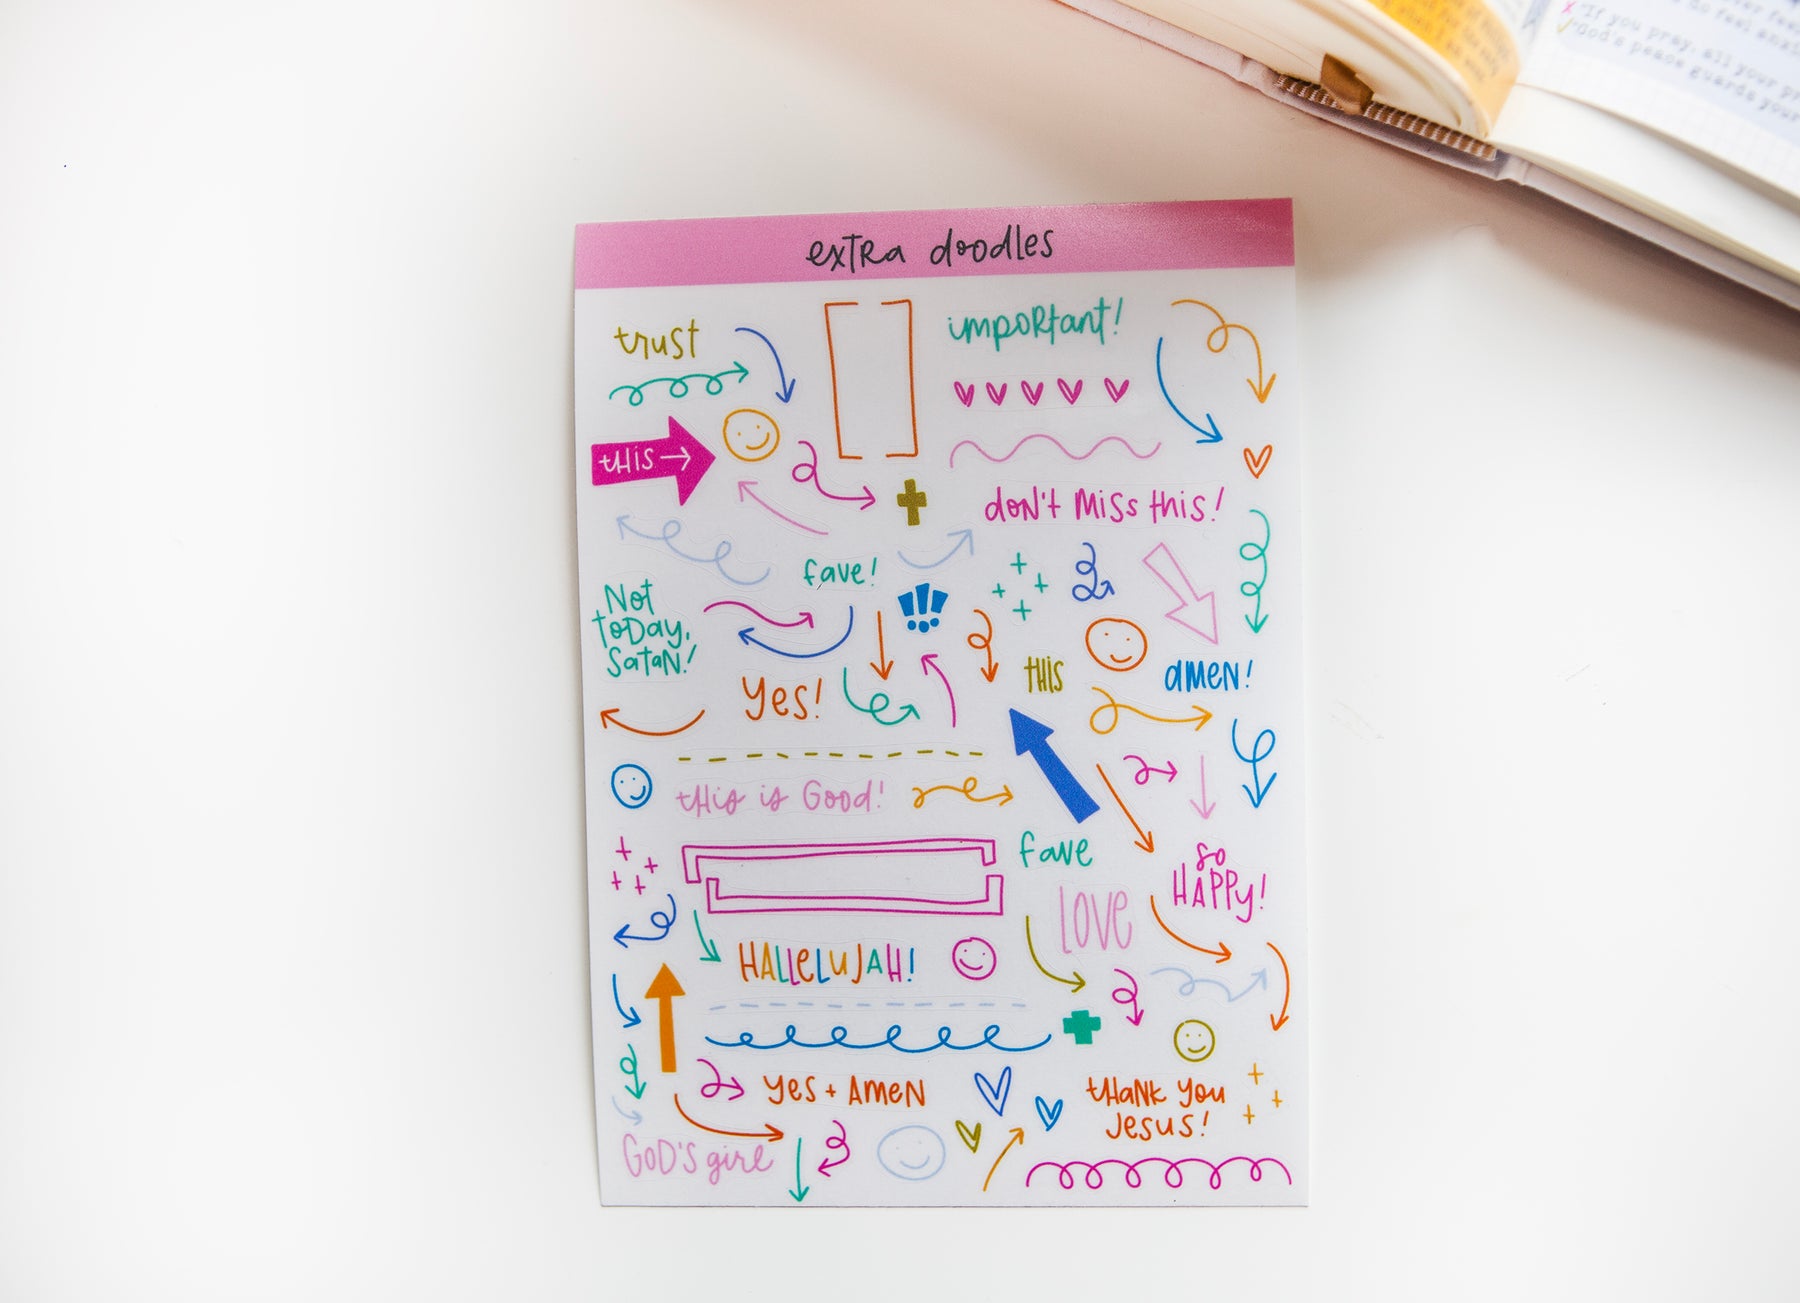 extra doodles
trust
important!
this →
don't miss this!
fave!
Not
today,
Satan!
this
amen!
yes!
this is Good!
fave
so
HAPPY!
LOVE
HALLELUJAH!
yes + AMEN
thank you
Jesus!
GOD'S girl
"If you pray, all your
God's peace guards your